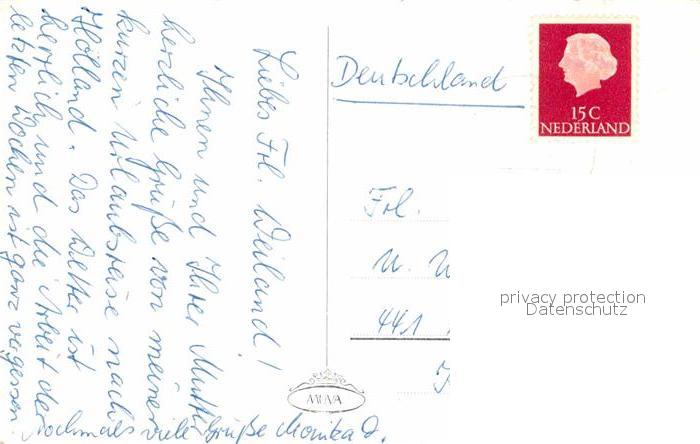 Liebes Frl. Weiland!
Ihnen und Ihrer Mutter
herzliche Grüße von meiner
kurzen Urlaubsreise nach
Holland. Das Wetter ist
herrlich und die Arbeit der
letzten Wochen ist ganz vergessen.
Nochmals viele Grüße Monika D.
Deutschland
15 C
NEDERLAND
Frl.
U. W
441
privacy protection
Datenschutz
MUVA